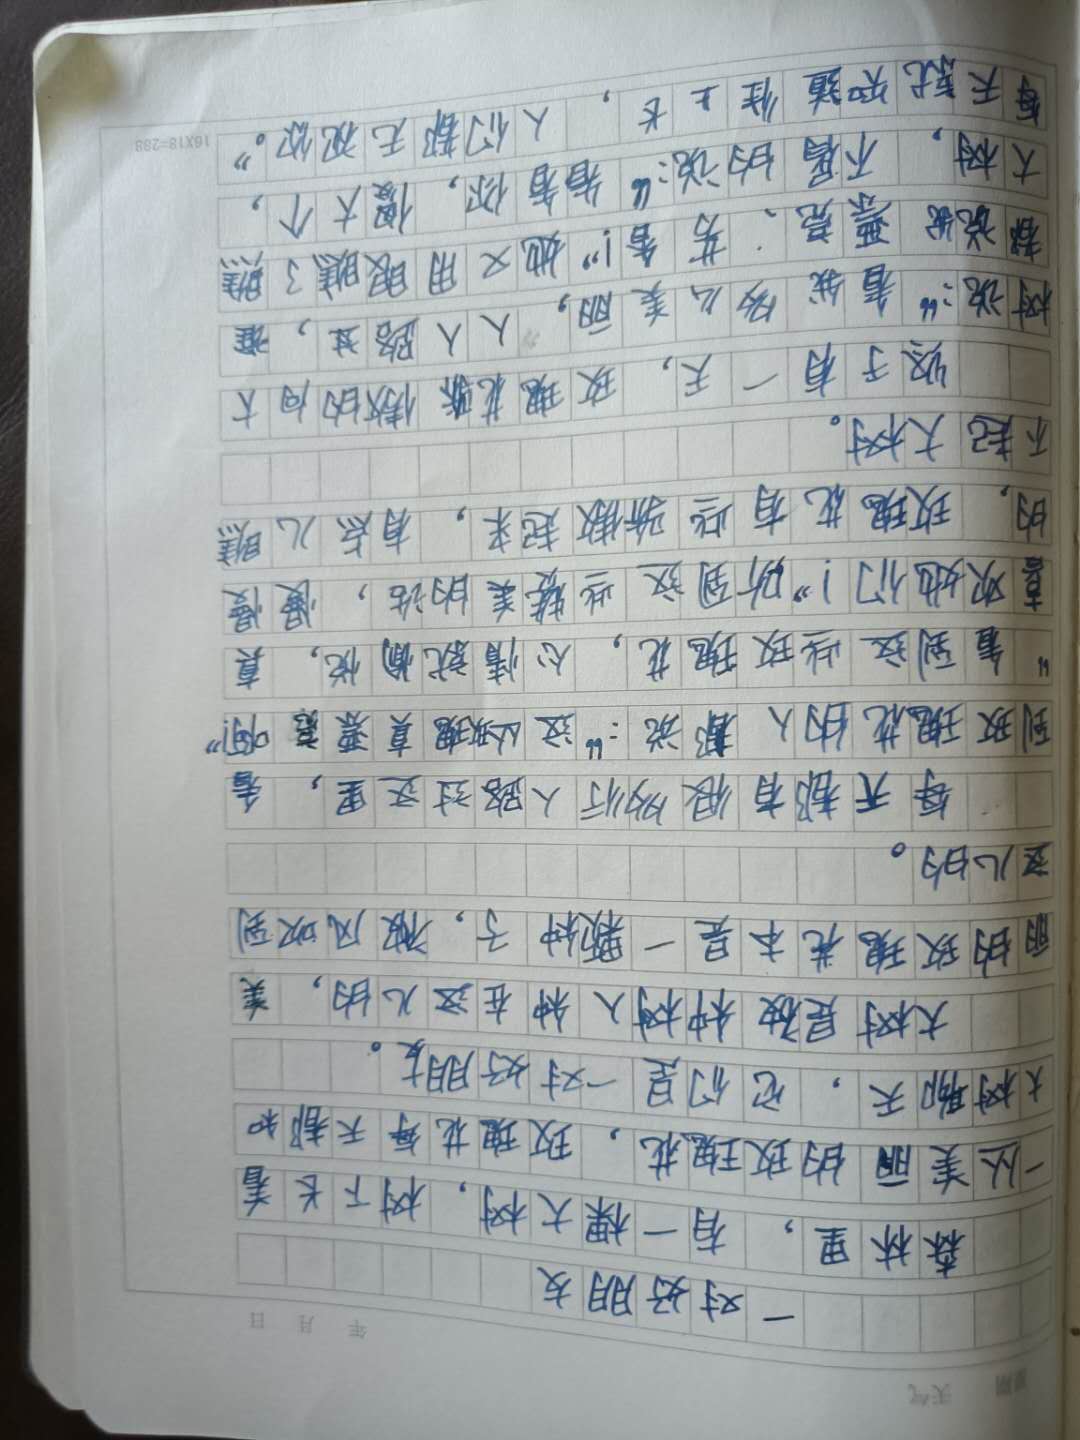 星期 天气 年 月 日
一对好朋友
森林里，有一棵大树，树下长着
一丛美丽的玫瑰花，玫瑰花每天都和
大树聊天，它们是一对好朋友。
大树是被种树人种在这儿的，美
丽的玫瑰花本是一颗种子，被风吹到
这儿的。
每天都有很多行人路过这里，看
到玫瑰花的人都说：“这玫瑰真漂亮啊！”
“看到这些玫瑰花，心情就愉悦，真
喜欢她们！”听到这些赞美的话，慢慢
的，玫瑰花有些骄傲起来，有点儿瞧
不起大树。
终于有一天，玫瑰花骄傲的向大
树说：“看我多么美丽，人人路过，谁
都说我漂亮、芳香！”她又用眼瞧了瞧
大树，不屑的说：“看看你，傻大个，
每天就知道往上长，人们都无视你。”
16X18=288